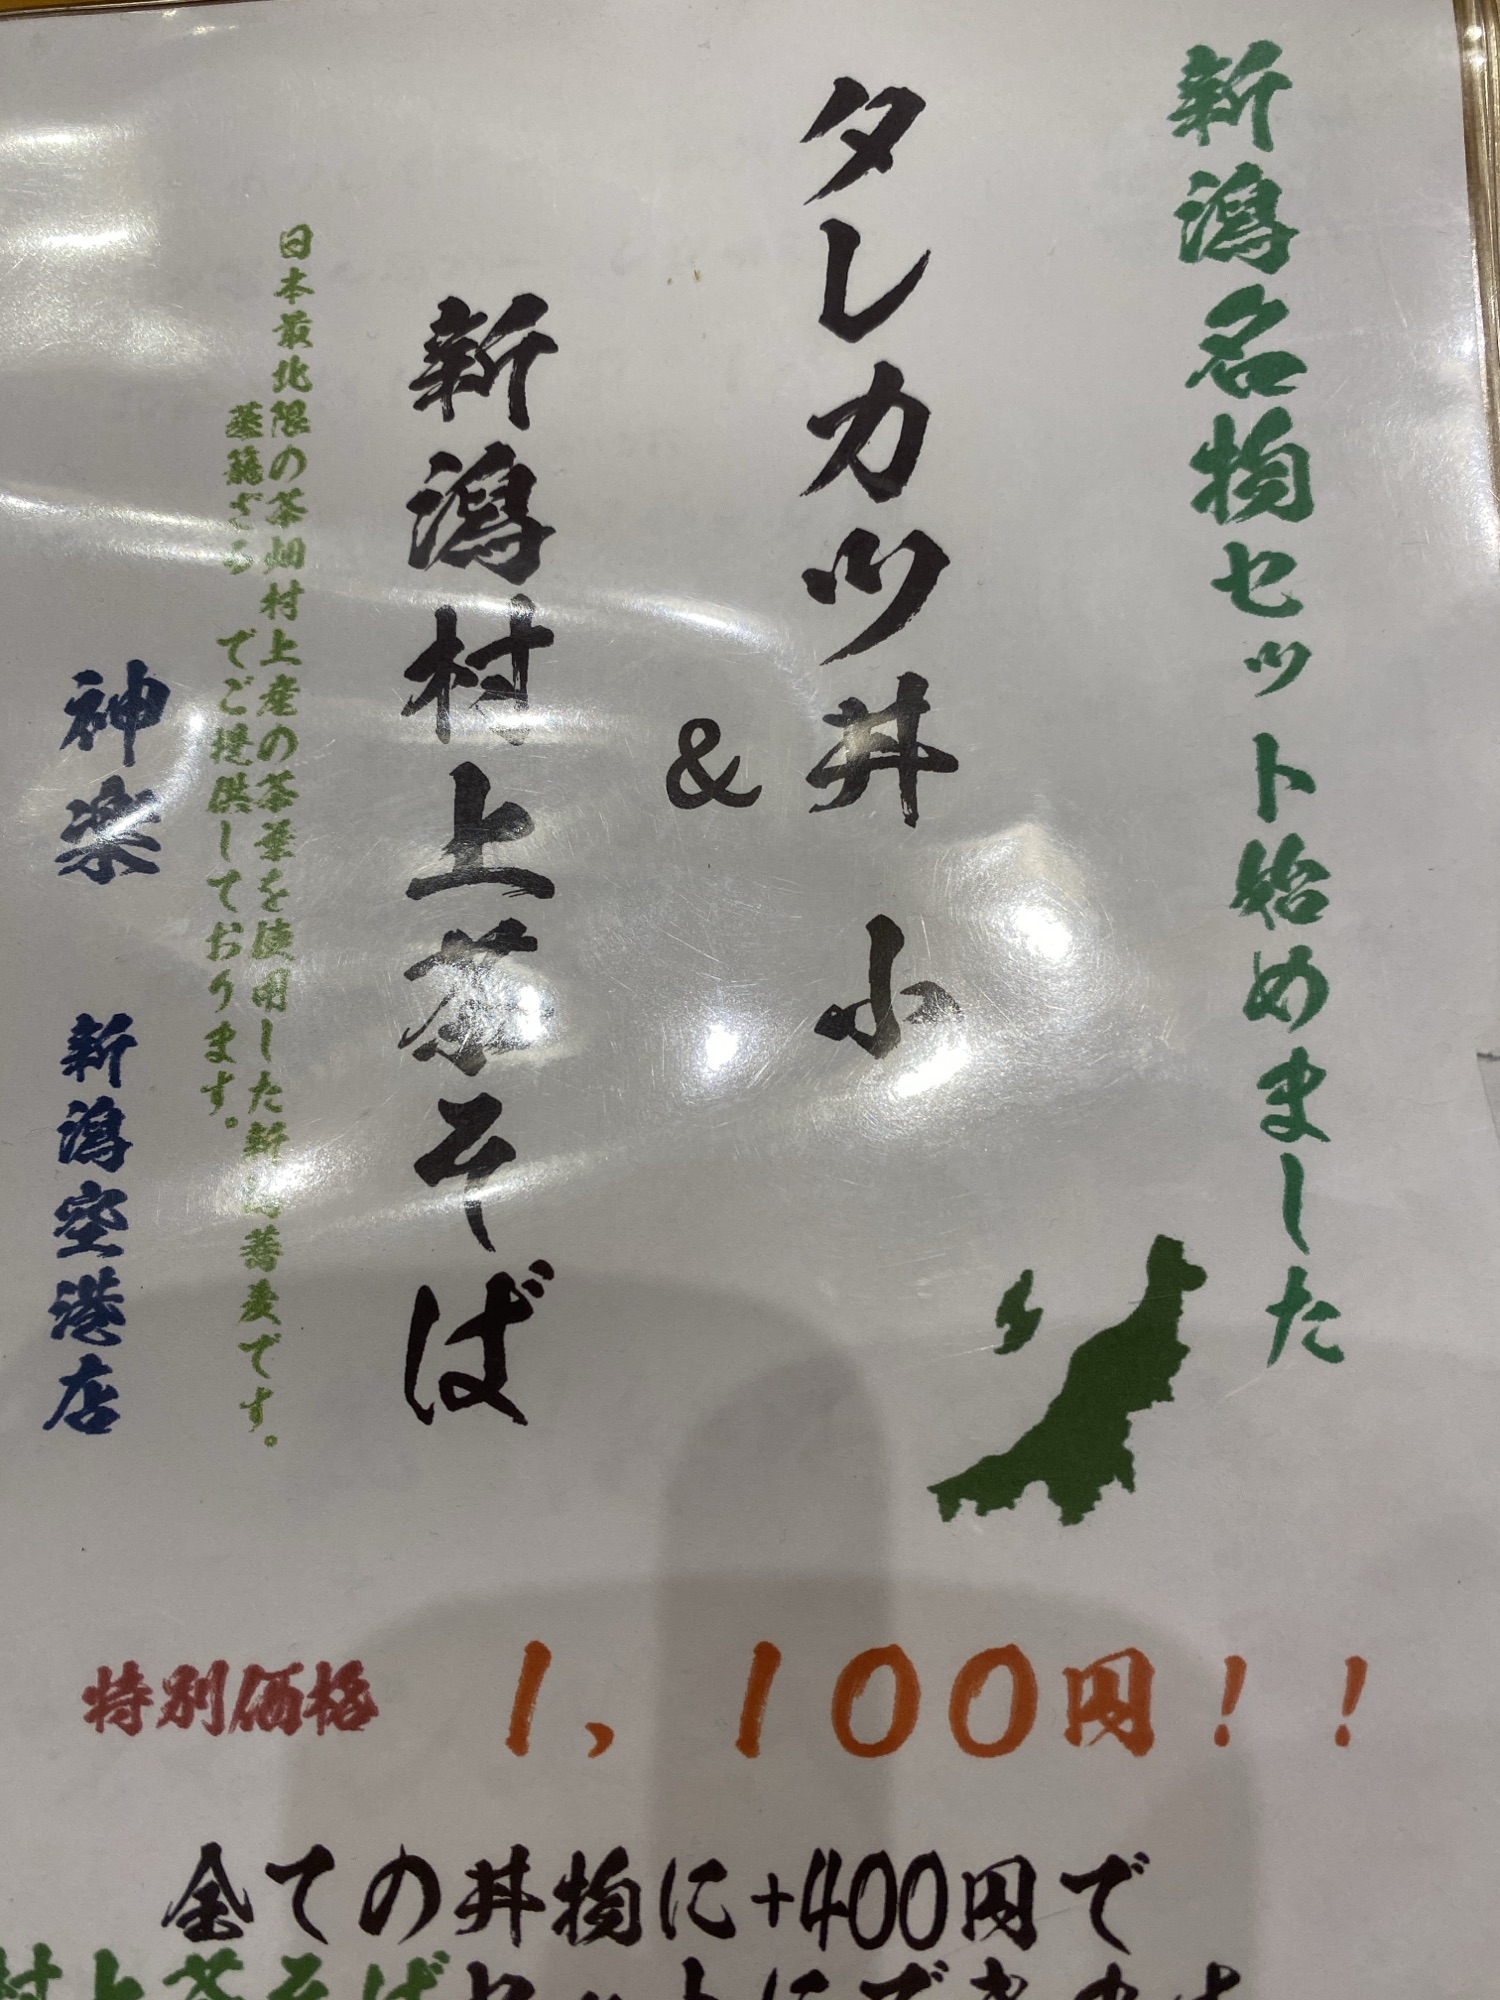 新潟名物セット始めました
タレカツ丼 小
&
新潟村上茶そば
日本最北限の茶畑村上産の茶葉を使用した新潟蕎麦です。
でご提供しております。
神楽 新潟空港店
特別価格 1,100円!!
全ての丼物に+400円で
村上茶そばセットにできます